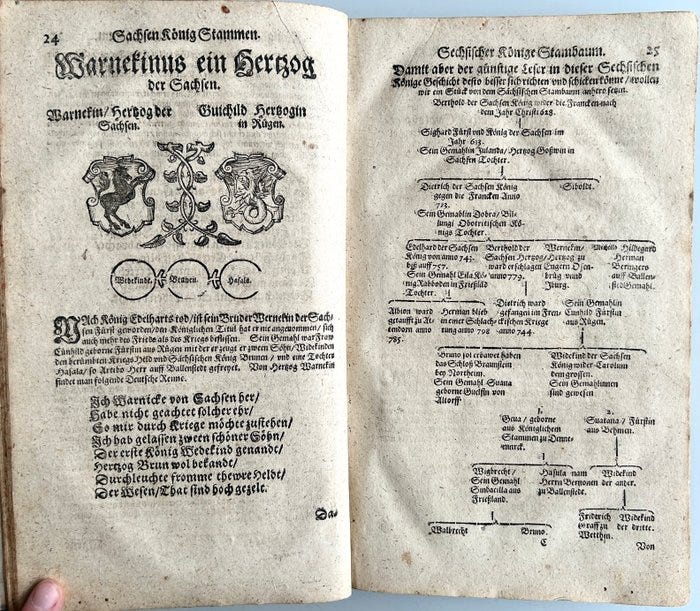 24 Sachsen König Stammen.
Warnekinus ein Hertzog
der Sachsen.
Warnekin/ Hertzog der Guichild Hertzogin
Sachsen. in Rügen.
Wedekinde. Brunen. Hasala.
NAch König Edelharts tod/ ist sein Bruder Wernekin der Sach-
sen Fürst geworden/ den Königlichen Titul hat er nie angenommen/ sich
auch mehr des Frieds als des Kriegs beflissen. Sein Gemahl war Fraw
Cunhild geborne Fürstin aus Rügen mit der er zeuge te zween Söhn/ Wedekinden
den berühmten Kriegs Held und Sächsischen König Brunen/ und eine Tochter
Hasala/ so Artebo Herr auff Ballenstedt gefreyet. Von Hertzog Warnekin
findet man folgende Deutsche Reime.
Ich Warnicke von Sachsen her/
Habe nicht geachtet solcher ehr/
So mir durch Kriege möchte zustehen/
Ich hab gelassen zween schöner Söhn/
Der erste König Wedekind genandt/
Hertzog Brun wol bekandt/
Durchleuchte fromme thewre Heldt/
Der Wesen/ That sind hoch gezelt.
Da-
Sechsischer Könige Stambaum. 25
Damit aber der günstige Leser in dieser Sechsischen
Könige Geschicht desto besser sich richten und schicken könne/ wollen
wir ein Stück von dem Sächsischen Stambaum anhero setzen.
Berthold der Sachsen König wider die Francken nach
dem Jahr Christi 628.
Sighard Fürst und König der Sachsen im
Jahr 633.
Sein Gemahlin Julanda/ Hertzog Goßwin in
Sachsen Tochter.
Dietrich der Sachsen König Siboldt.
gegen die Francken Anno
723.
Sein Gemahlin Dobra/ Bil-
lungi Obotritischen Kö-
nigs Tochter.
Edelhard der Sachsen Berthold der Wernekin/ Hildegard
König von anno 743. Sachsen Hertzog/ Hertzog zu Herman
biß auff 757. ward erschlagen Engern Osen- Beringers
Sein Gemahl Eila Kö- anno 779. brüg und auff Ballen-
nig Rabboden in Frießland Iburg. stedt Gemahl.
Tochter.
Albion ward Herman blieb Dietrich ward Sein Gemahlin
getaufft zu Al- in einer Schlach- gefangen im Fren- Cunhild Fürstin
tendorn anno tung anno 798 anno 744. aus Rügen.
785.
Bruno sol erbawet haben Wedekind der Sachsen
das Schloß Braunstein König wider Carolum
bey Northeim. dem grossen.
Sein Gemahl Suana Sein Gemahlinnen
geborne Guelfin von sind gewesen
Altorff
1. 2.
Geva/ geborne Suatana/ Fürstin
aus Königlichen aus Behmen.
Stammen zu Denne-
marck.
Wigbrecht/ Hasala nam Wedekind
Sein Gemahl Herrn Bernonen der ander.
Sindacilla aus zu Ballenstedt.
Frießland.
Friderich Wedekind
Graff zu der dritte.
Wetthin.
Walbrecht Bruno.
C Von